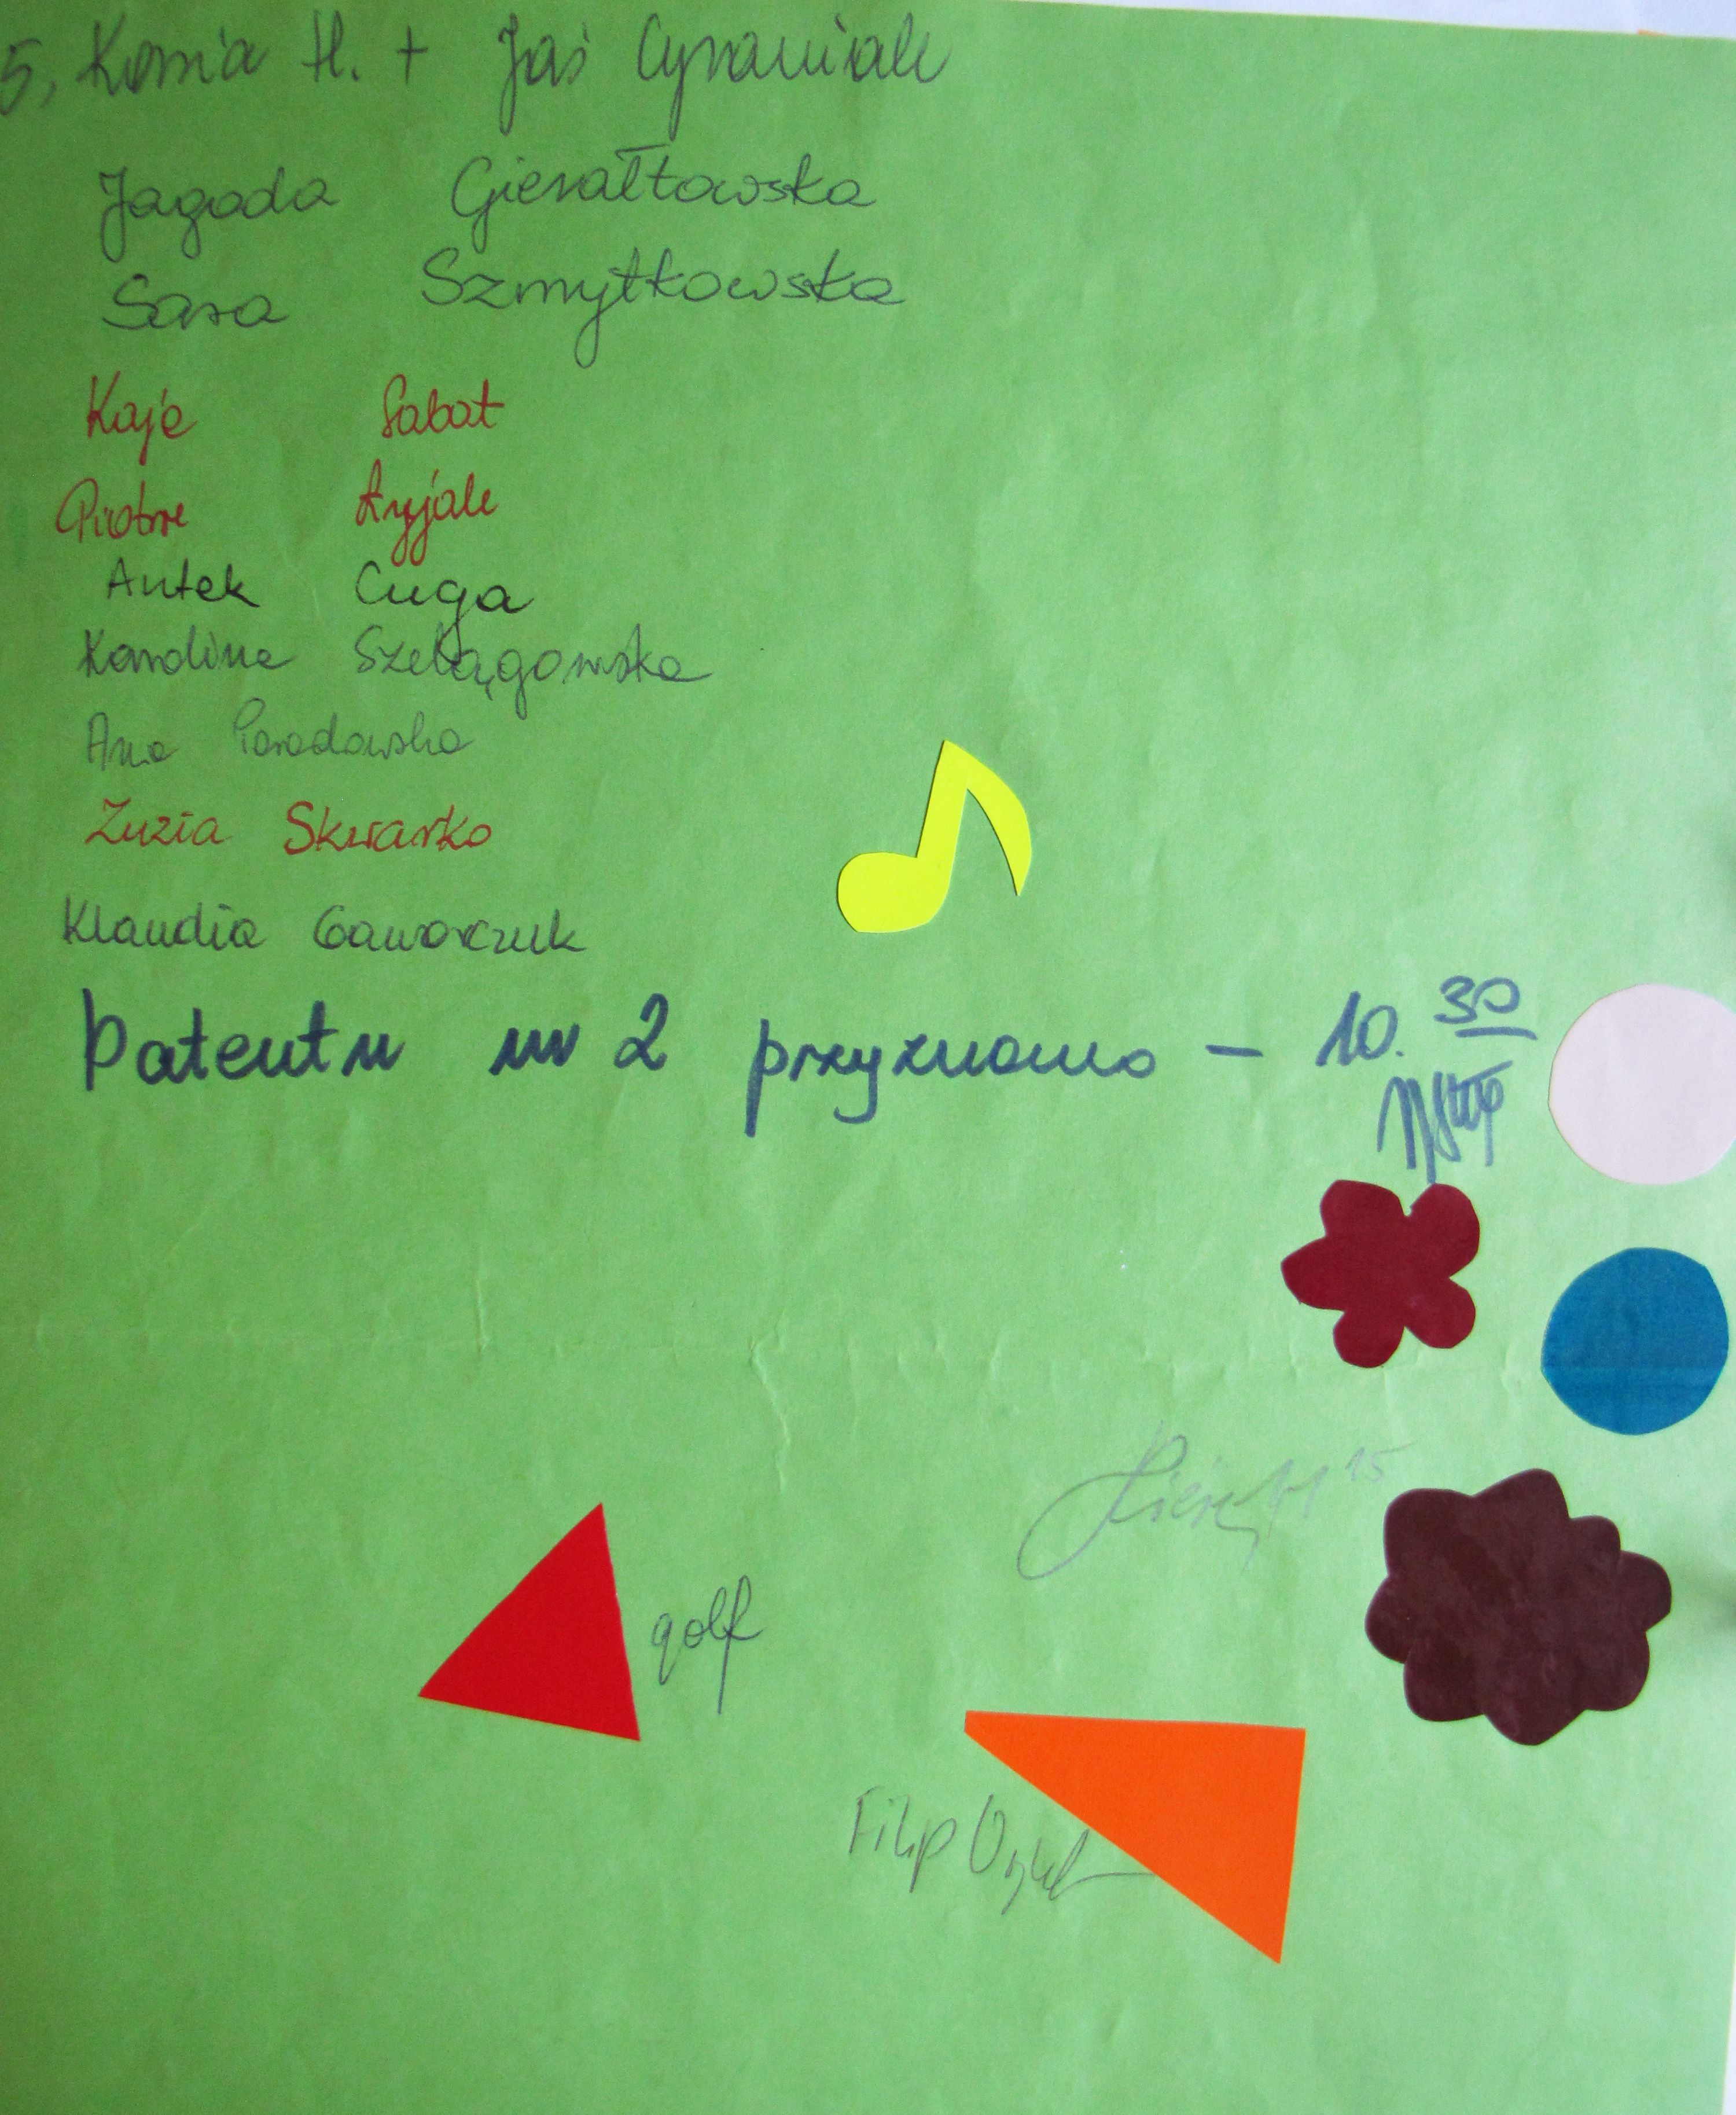 5, Kornia H. + Jaś Cyraniak
Jagoda Gierałtowska
Sara Szmytkowska
Kaja Sabat
Piotr Ryjak
Antek Cuga
Karolina Szelągowska
Ana Paradowska
Zuzia Skwarko
Klaudia Gaworczuk
Patentu nr 2 przyznano – 10.30
15
golf
Filip